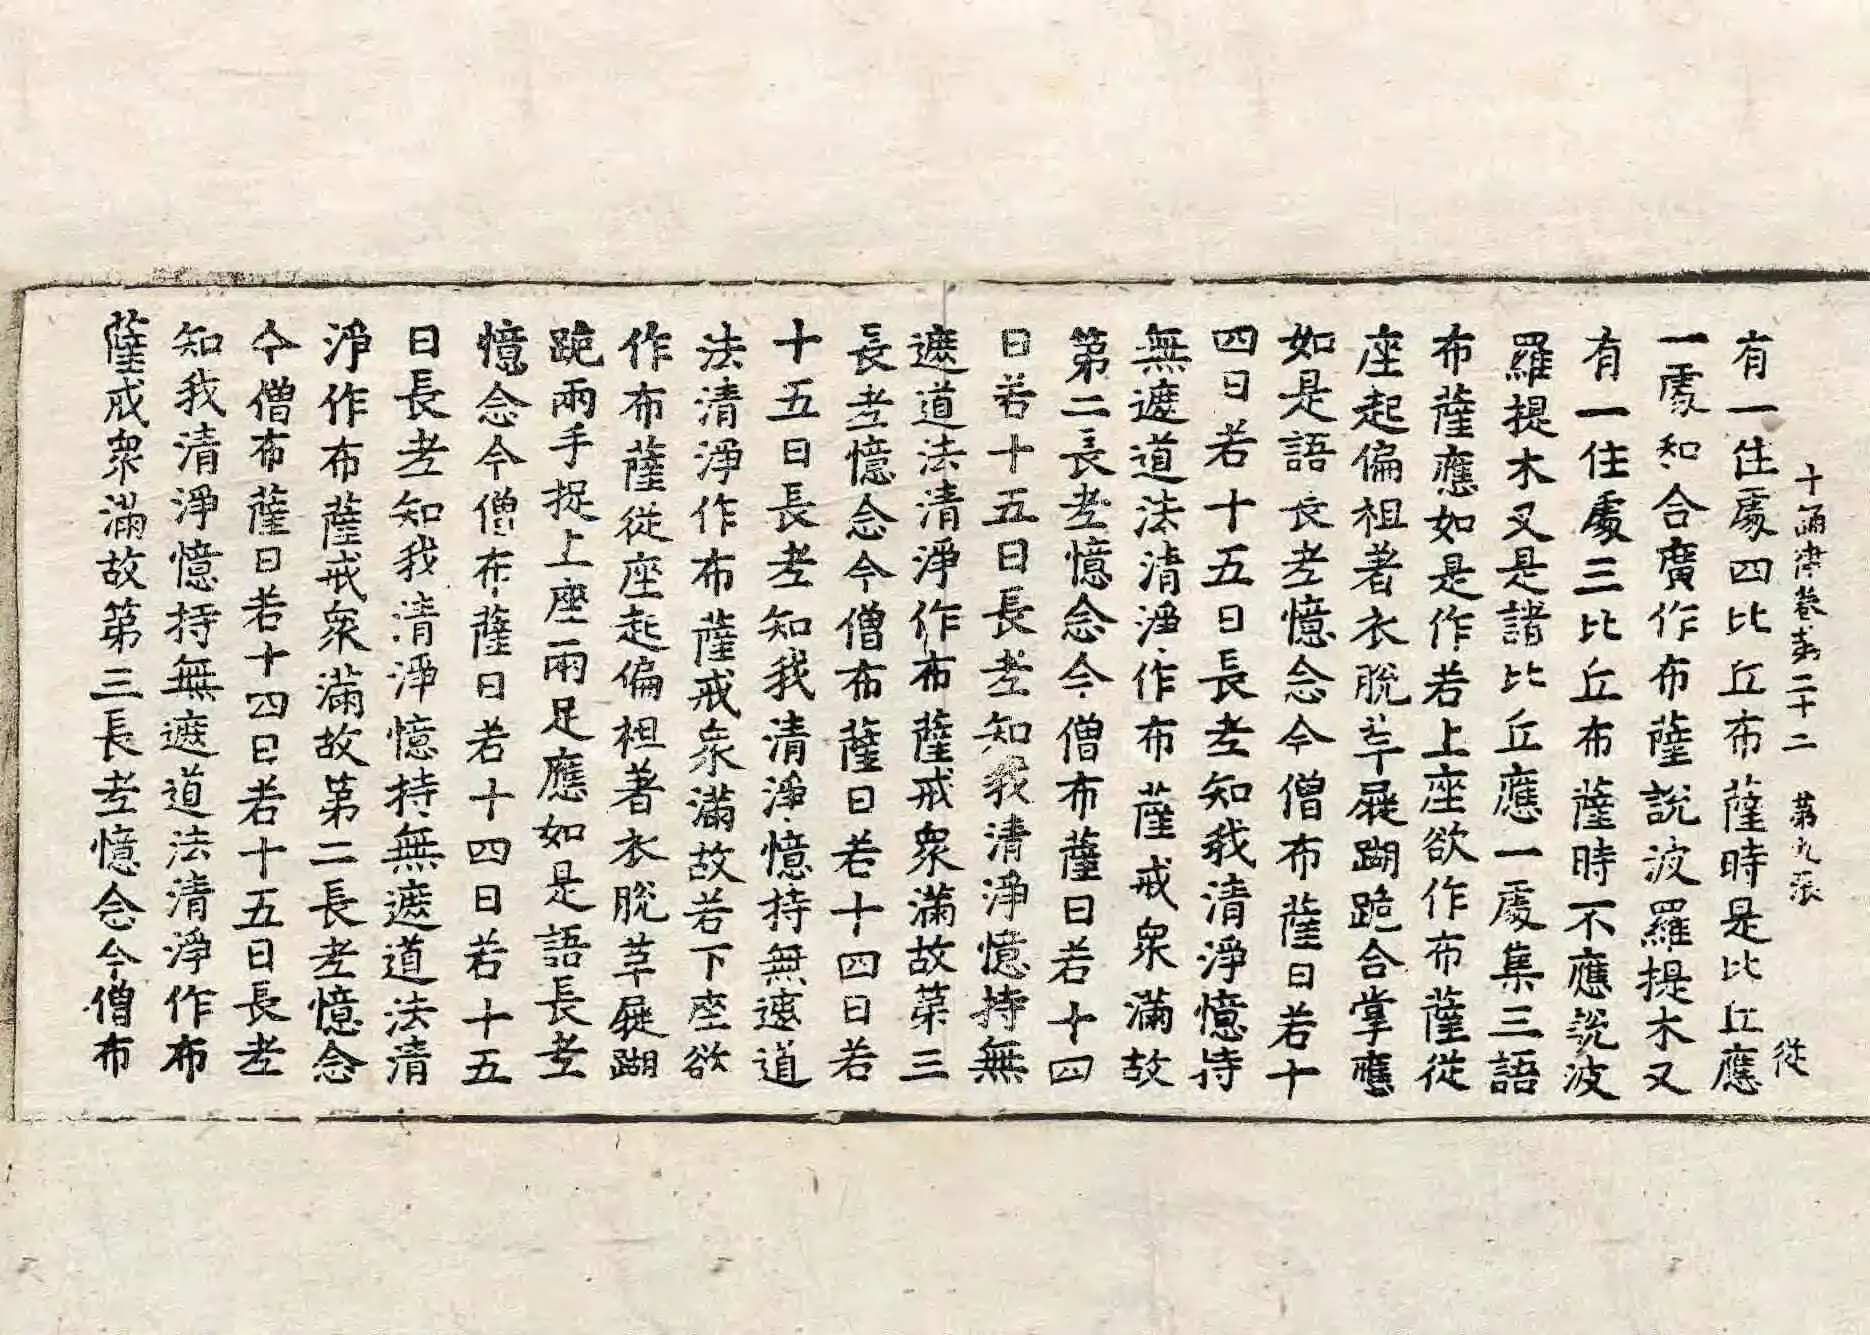 十誦律卷第二十二　第九張　從
有一住處四比丘布薩時是比丘應
一處和合廣作布薩說波羅提木叉
有一住處三比丘布薩時不應說波
羅提木叉是諸比丘應一處集三語
布薩應如是作若上座欲作布薩從
座起偏袒著衣脫革屣䠒跪合掌應
如是語長老憶念今僧布薩日若十
四日若十五日長老知我清淨憶持
無遮道法清淨作布薩戒衆滿故
第二長老憶念今僧布薩日若十四
日若十五日長老知我清淨憶持無
遮道法清淨作布薩戒衆滿故第三
長老憶念今僧布薩日若十四日若
十五日長老知我清淨憶持無遮道
法清淨作布薩戒衆滿故若下座欲
作布薩從座起偏袒著衣脫革屣䠒
跪兩手捉上座兩足應如是語長老
憶念今僧布薩日若十四日若十五
日長老知我清淨憶持無遮道法清
淨作布薩戒衆滿故第二長老憶念
今僧布薩日若十四日若十五日長老
知我清淨憶持無遮道法清淨作布
薩戒衆滿故第三長老憶念今僧布